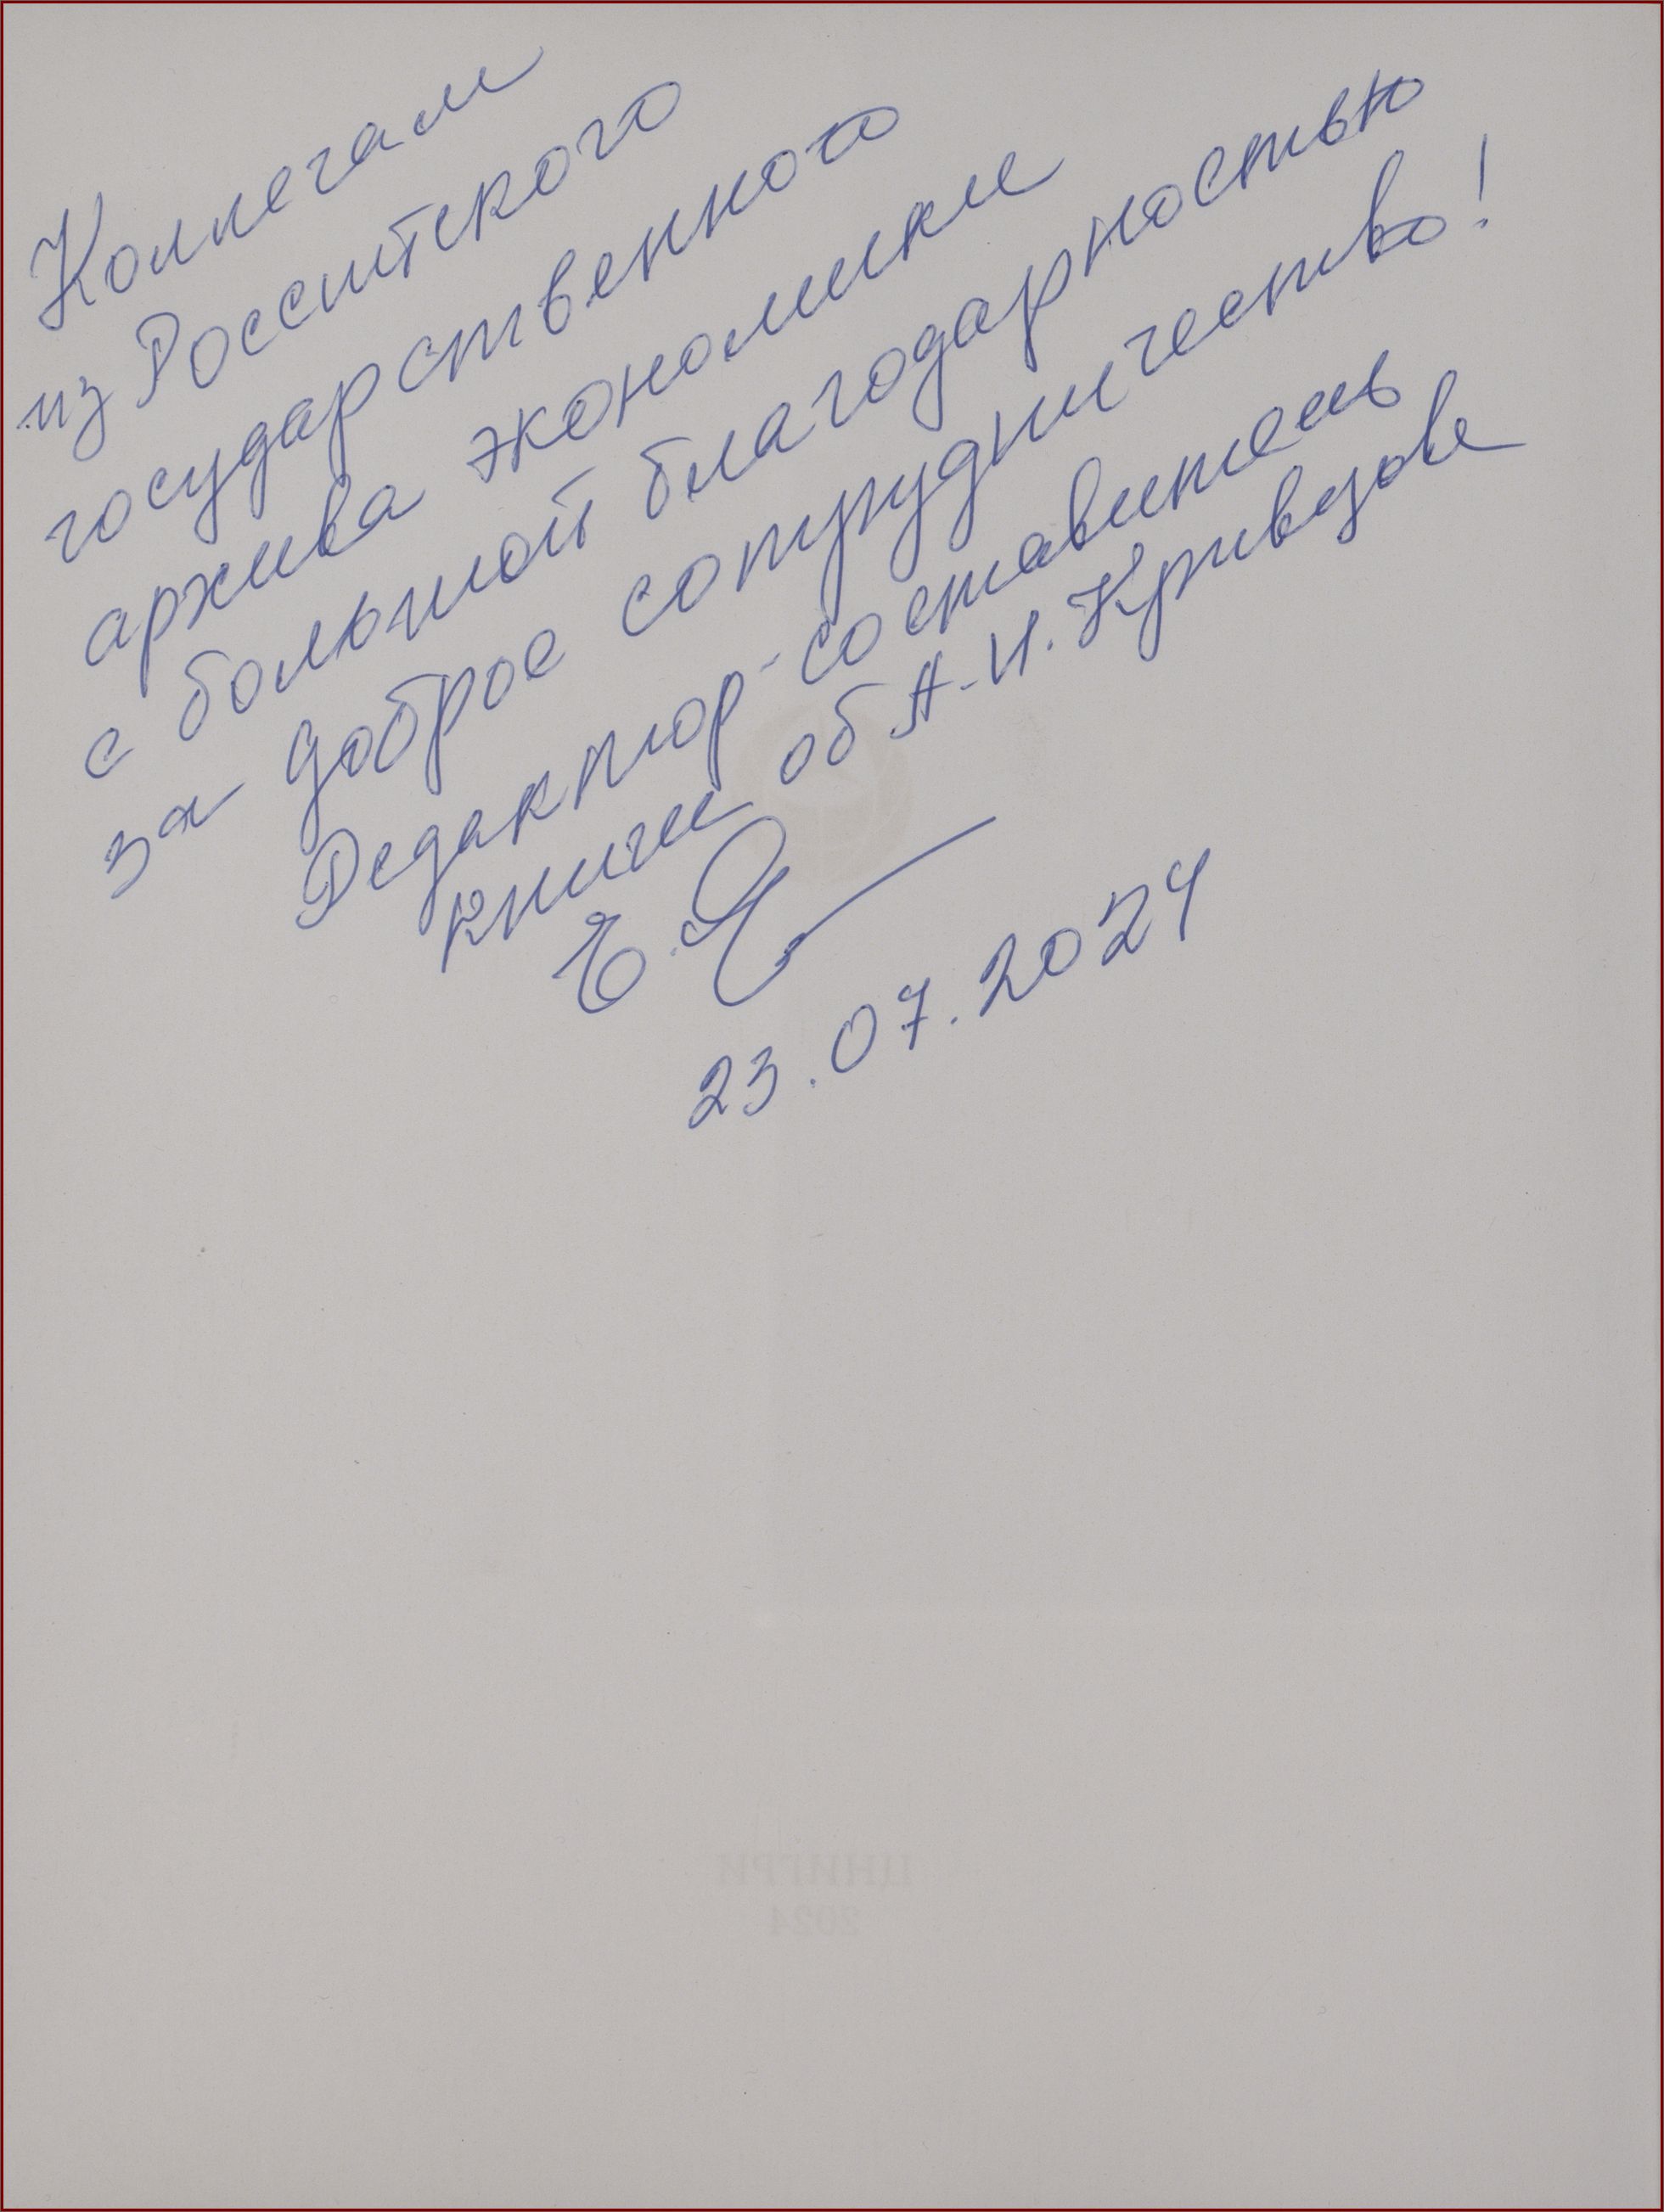 Коллегам
из Российского
государственного
архива экономики
с большой благодарностью
за доброе сотрудничество!
Редактор-составитель
книги об А.И. Кривцове
23.07.2024
ЦНИГРИ
2024